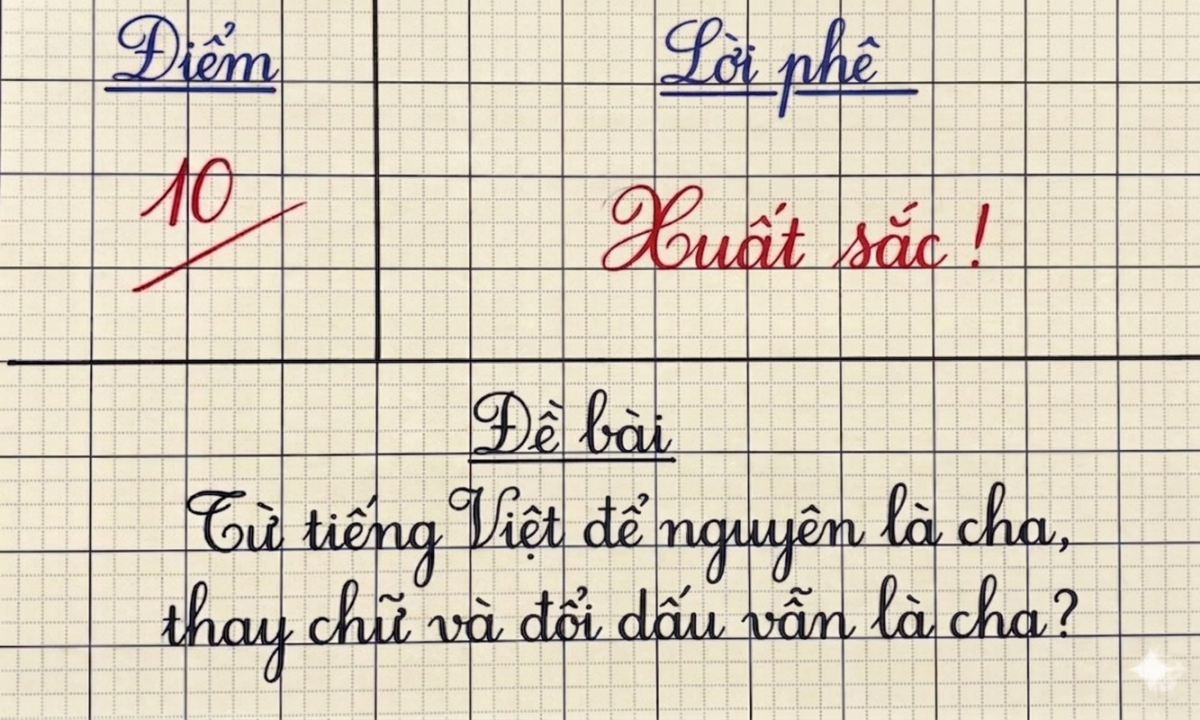 Điểm
Lời phê
10
Xuất sắc !
Đề bài
Từ tiếng Việt để nguyên là cha,
thay chữ và đổi dấu vẫn là cha?